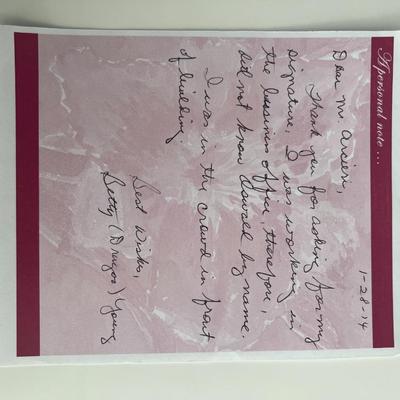 A personal note ...
1-28-14
Dear Mr. Arcieri,
Thank you for asking for my
signature. I was working in
the business office, therefore,
did not know Oswald by name.
I was in the crowd in front
of building.
Best Wishes,
Betty (Dragoo) Young